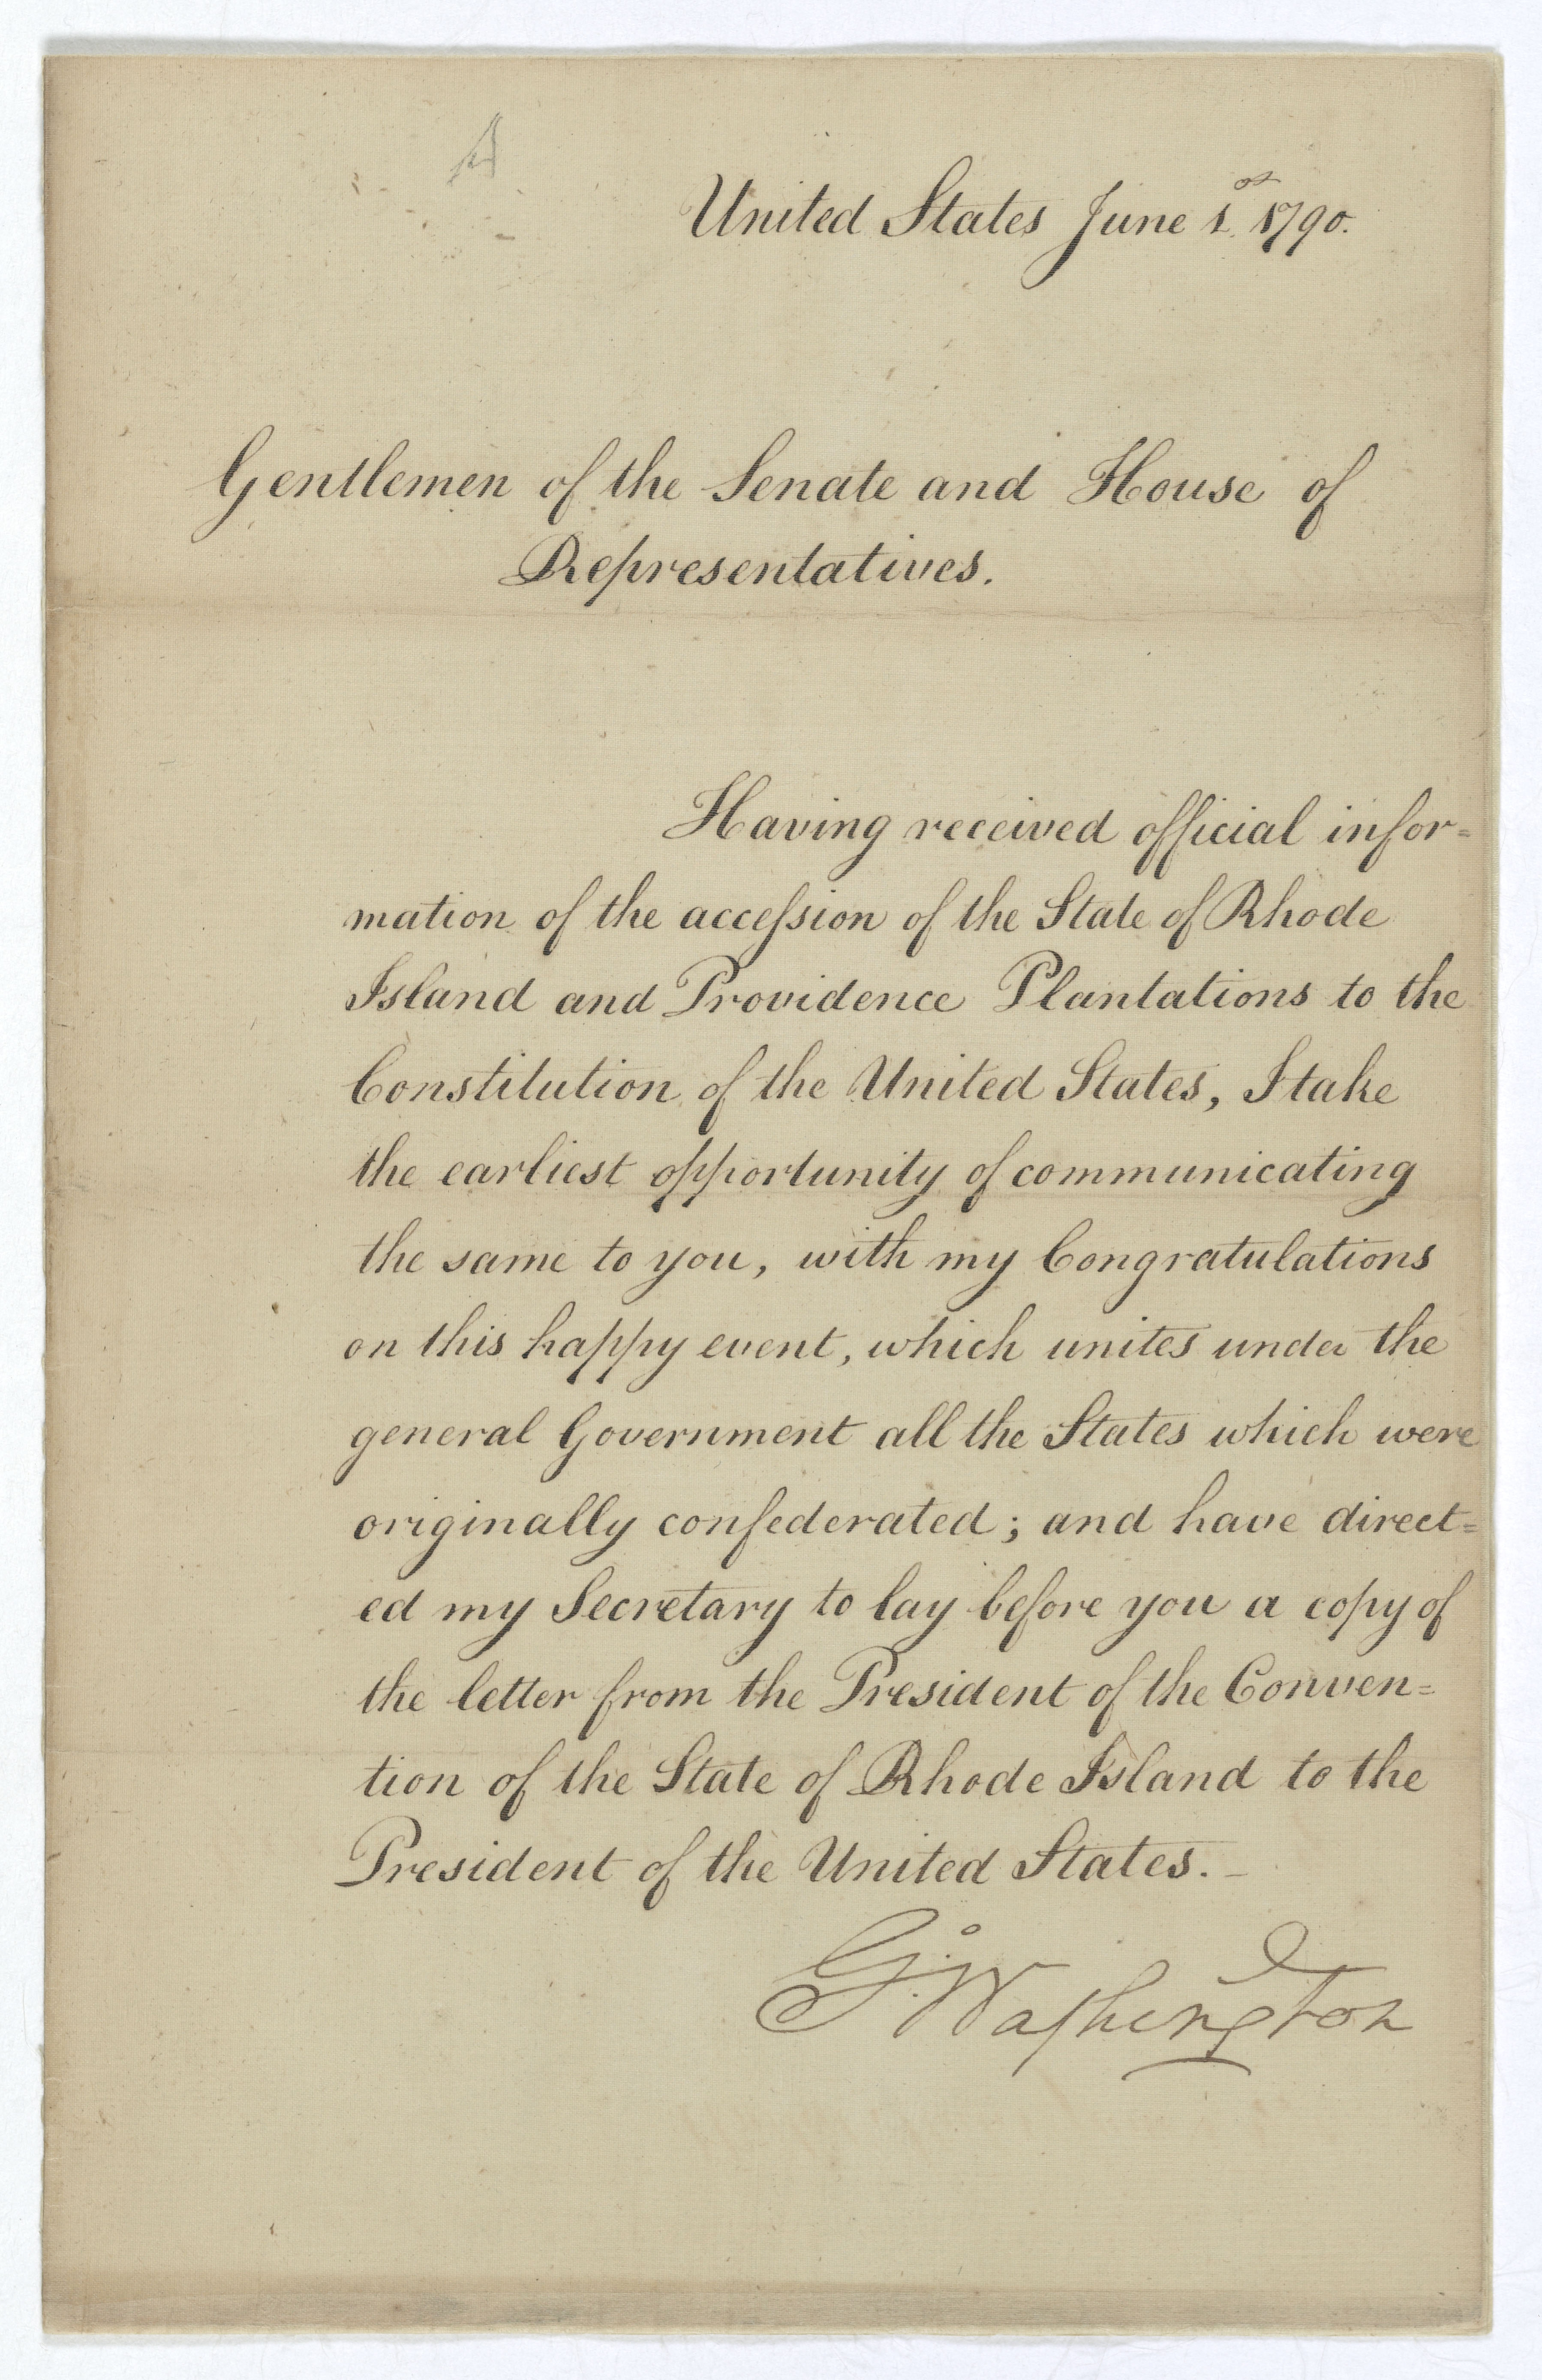 United States June 1st 1790.
Gentlemen of the Senate and House of
Representatives.
Having received official infor=
mation of the acceſsion of the State of Rhode
Island and Providence Plantations to the
Constitution of the United States, I take
the earliest opportunity of communicating
the same to you, with my Congratulations
on this happy event, which unites under the
general Government all the States which were
originally confederated; and have direct=
ed my Secretary to lay before you a copy of
the letter from the President of the Conven=
tion of the State of Rhode Island to the
President of the United States._
Go: Waſhington